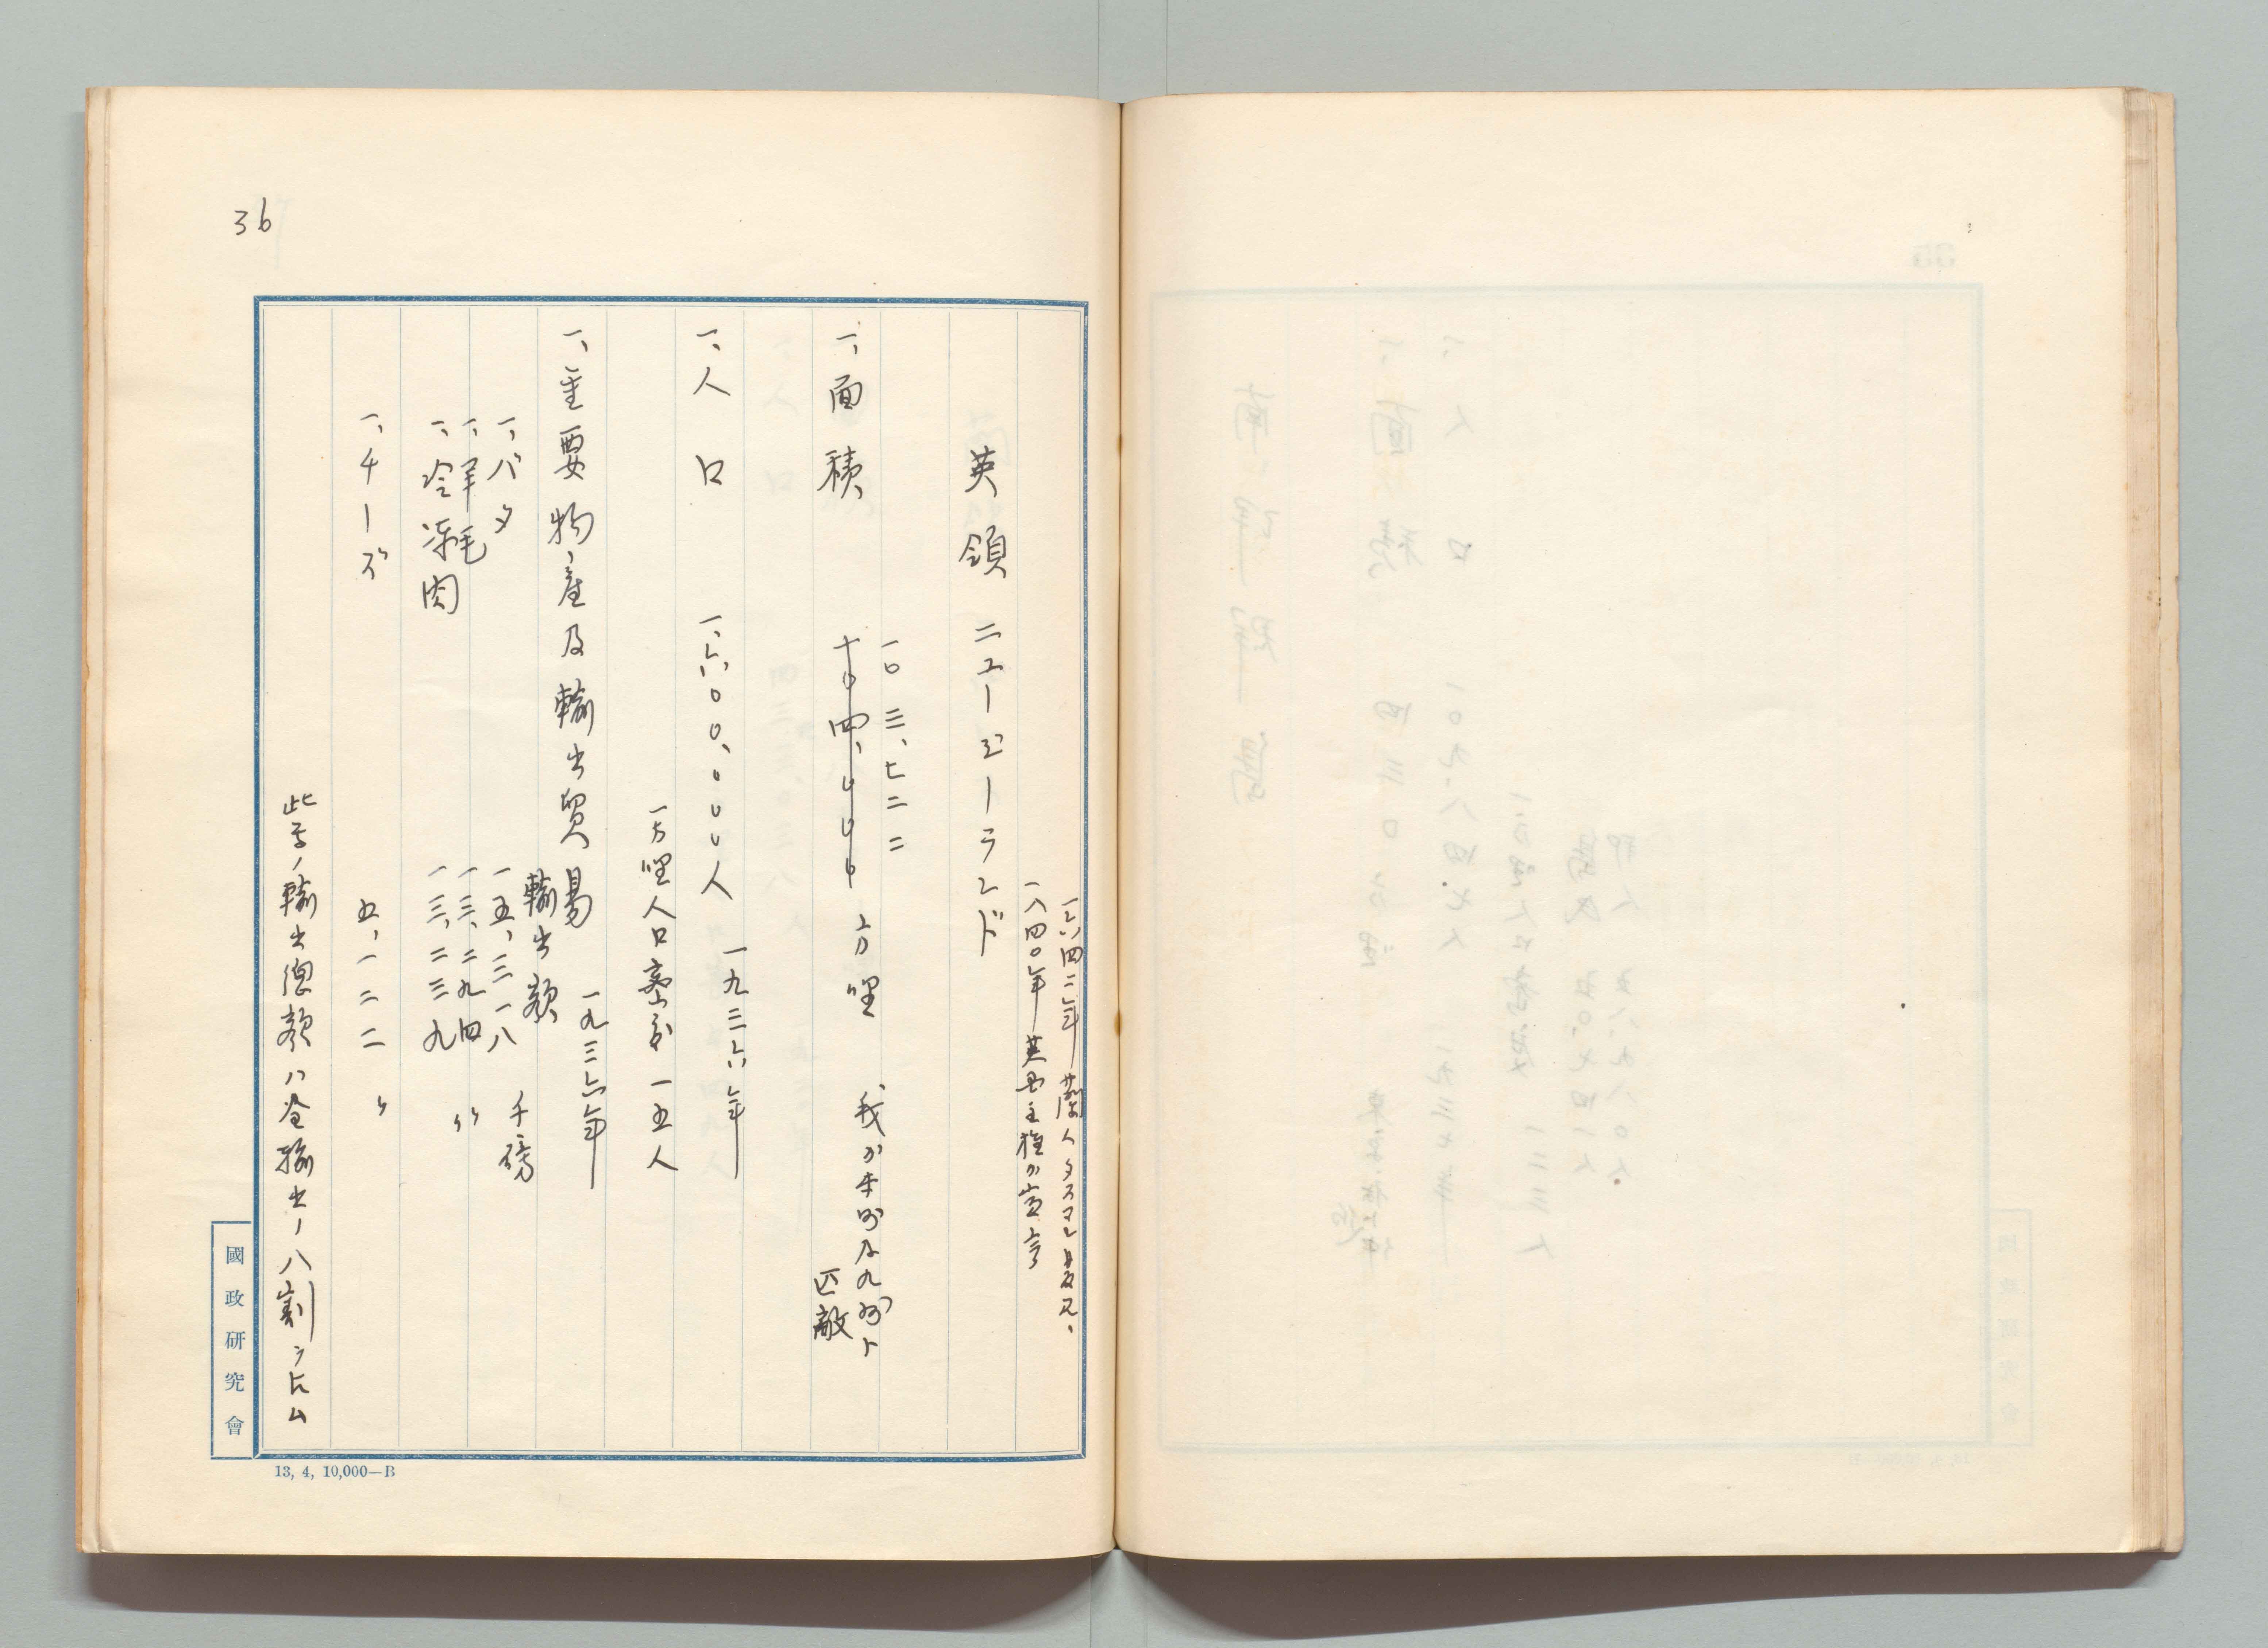 36
一六四二年蘭人タスマン発見、
一八四〇年英国主権ガ宣言
英領ニュージーランド
一〇三、七二二
一、面積 方哩 我ガ本州及九州ト
匹敵
一、人口 一、六〇〇、〇〇〇人 一九三六年
一方哩人口密度 一五人
一、重要物産及輸出貿易 一九三六年
輸出額 千磅
一、バタ 一五、三一八
一、羊毛 一三、二九四 〃
一、冷凍肉 一三、二三九
一、チーズ 五、一二二 〃
此等ノ輸出総額ハ全輸出ノ八割ヲ占ム
國政研究會
13, 4, 10,000—B